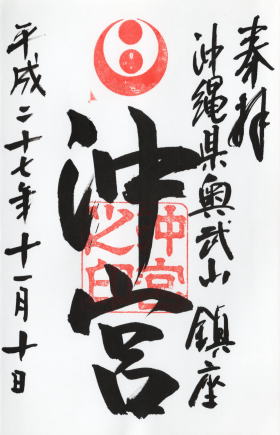 奉拝
沖縄県奥武山 鎮座
沖宮
沖宮之印
平成二十七年十一月十日